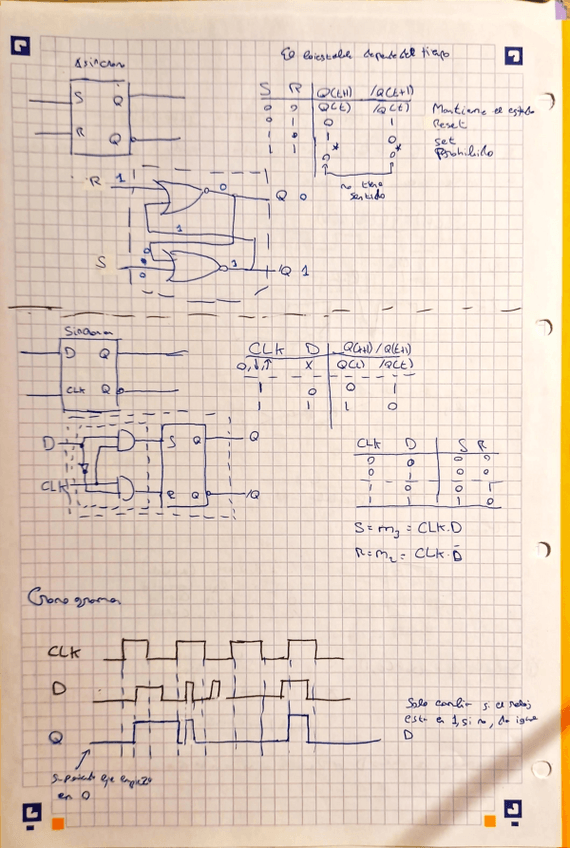 El biestable depende del tiempo
Asíncrono
S Q
R Q
S R Q(t+1) /Q(t+1)
0 0 Q(t) /Q(t) Mantiene el estado
0 1 0 1 Reset
1 0 1 0 set
1 1 0* 0* Prohibido
no tiene
sentido
R 1 0 Q 0
1
0
S 0 1 /Q 1
Síncrono
D Q
CLK Q
CLK D Q(t+1) /Q(t+1)
0,↓,↑ X Q(t) /Q(t)
1 0 0 1
1 1 1 0
D S Q Q
CLK R Q /Q
CLK D S R
0 0 0 0
0 1 0 0
1 0 0 1
1 1 1 0
S = m3 = CLK·D
R = m2 = CLK·D̄
Cronograma
CLK
D
Q
Solo cambia si el reloj
esta en 1, si no, da igual
D
Suponiendo que empieza
en 0